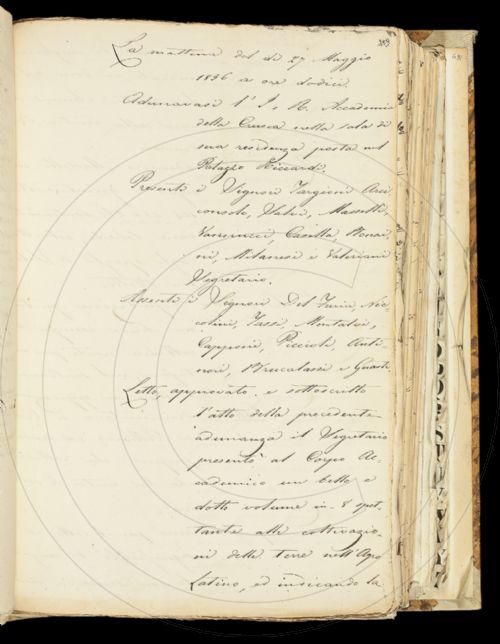 La mattina del dì 27 Maggio
1856 a ore dodici.
Adunavasi l'I. e R. Accademia
della Crusca nella sala di
sua residenza posta nel
Palazzo Riccardi.
Presenti i Signori Targioni Arci
consolo, Salvi, Masselli,
Vannucci, Casella, Bonai-
ni, Milanesi e Valeriani
Segretario.
Assenti i Signori Del Furia, Nic
colini, Tassi, Montalvi,
Capponi, Piccioli, Anti-
nori, Brucalassi e Guasti
Letto, approvato e sottoscritto
l'atto della precedente
adunanza il Segretario
presentò al Corpo Ac-
cademico un bello e
dotto volume in-8 spet-
tante alle coltivazio-
ni delle terre nell'Agro
Latino, ed indicando la